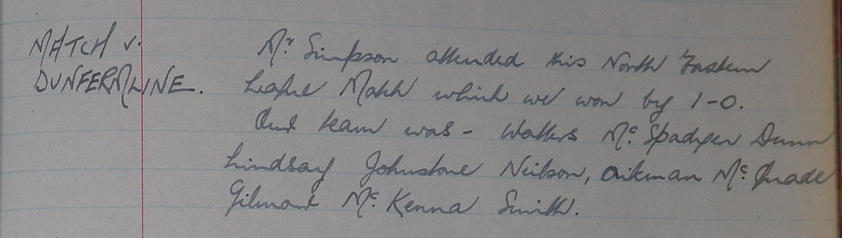 MATCH v. Mr Simpson attended this North Eastern
DUNFERMLINE. League Match which we won by 1-0.
Our team was - Walters McSpadyen Dunn
Lindsay Johnstone Neilson, Aikman McQuade
Gilmour McKenna Smith.